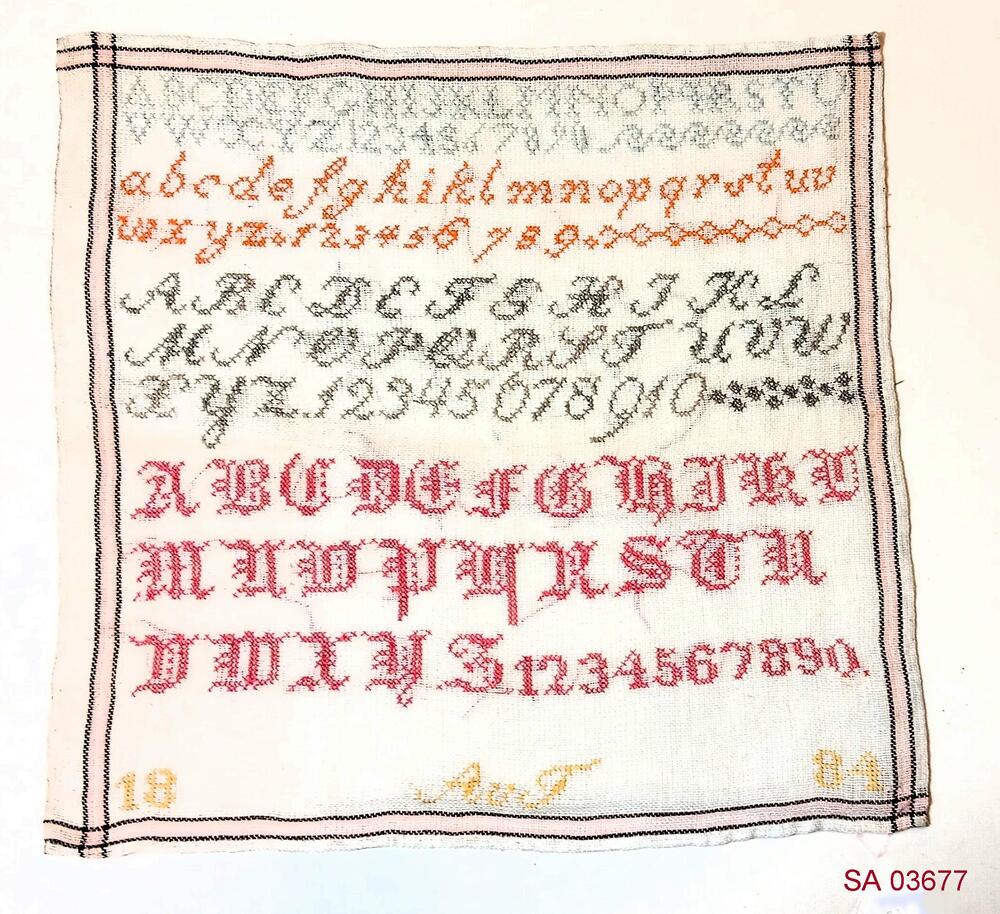 ABCDEFGHIJKLMNOPQRSTU
VWXYZ1234567890
abcdefghiklmnopqrstuv
wxyz.123456789.
ABCDEFGHIKL
MNOPQRSTUVW
XYZ.12345678910
ABCDEFGHIKL
MNOPQRSTU
VWXYZ1234567890.
18 AvT 84
SA 03677